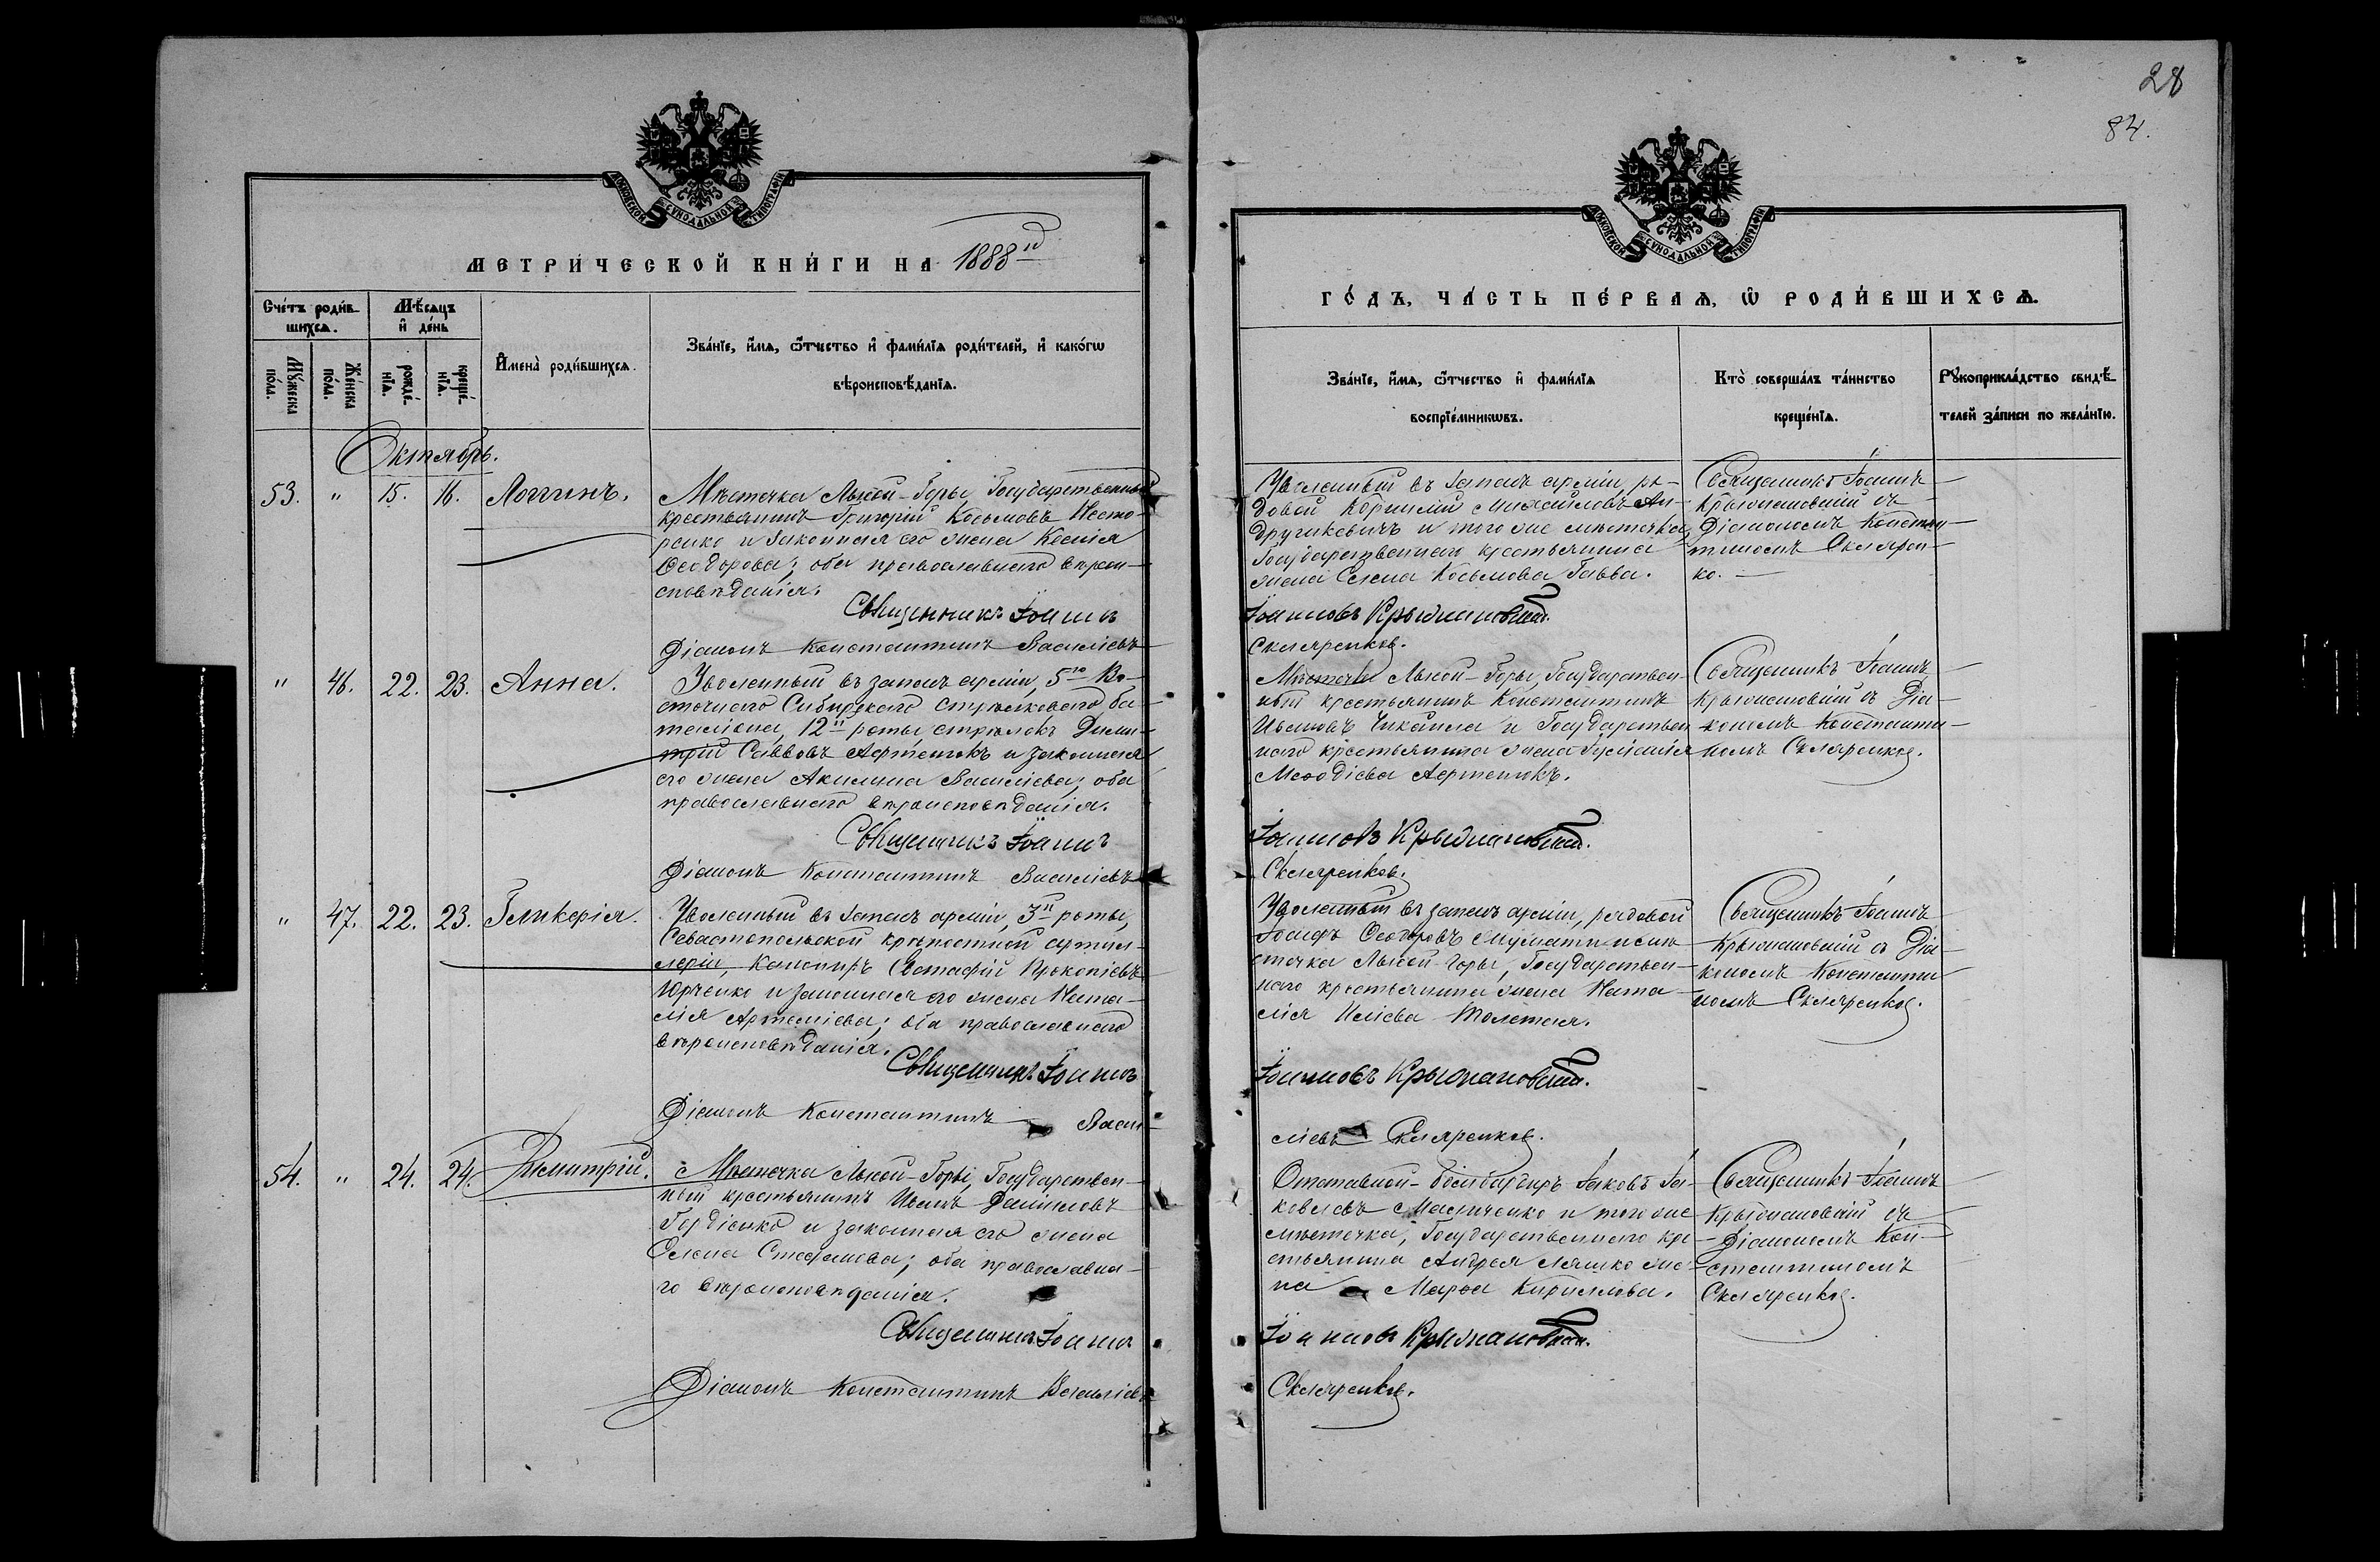 28
84.
МОСКОВСКОЙ СѴНОДАЛЬНОЙ ТИПОГРАФІИ
МЕТРИ́ЧЕСКОЙ КНИ́ГИ НА 1888й
Сче́тъ роди́в-
шихсѧ.
Мѣ́сѧцъ
и҆ де́нь
Мꙋ́жеска по́ла.
Же́нска по́ла.
рожде́-нїѧ.
креще́-нїѧ.
И҆мена̀ роди́вшихсѧ.
Зва́нїе, и҆́мѧ, ѻ҆́тчество и҆ фами́лїѧ роди́телей, и҆ како́гѡ
вѣроисповѣ́данїѧ.
Октябрь.
53. " 15. 16. Логгинъ.
Мѣстечка Лысой-Горы, Государственный
крестьянинъ Григорій Косьмовъ Несто-
ренко и законная его жена Ксенія
Ѳеодорова; оба православнаго вѣрои-
сповѣданія.
Священникъ Іоаннъ
Діаконъ Константинъ Василіевъ
" 46. 22. 23. Анна.
Уволенный въ запасъ арміи, 5го Во-
сточнаго Сибирскаго стрѣлковаго ба-
таліона, 12й роты, стрѣлокъ Дими-
трій Саввовъ и законная
его жена Акилина Василіева; оба
православнаго вѣроисповѣданія.
Священникъ Іоаннъ
Діаконъ Константинъ Василіевъ
" 47. 22. 23. Гликерія.
Уволенный въ запасъ арміи, 3й роты,
Севастопольской крѣпостной артил-
леріи, Канониръ Евстафій Прокопіевъ
Юрченко и законная его жена Ната-
лія Артеміева; оба православнаго
вѣроисповѣданія.
Священникъ Іоаннъ
Діаконъ Константинъ Васи-
54. " 24. 24. Димитрій.
Мѣстечка Лысой-Горы, Государствен-
ный крестьянинъ Иванъ Даніиловъ
Гордіенко и законная его жена
Елена Стефанова; оба православна-
го вѣроисповѣданія.
Священникъ Іоаннъ
Діаконъ Константинъ Василіевъ
МОСКОВСКОЙ СѴНОДАЛЬНОЙ ТИПОГРАФІИ
ГО́ДЪ, ЧА́СТЬ ПЕ́РВАѦ, Ѡ҆ РОДИ́ВШИХСѦ.
Зва́нїе, и҆́мѧ, ѻ҆́тчество и҆ фами́лїѧ
воспрїе́мникѡвъ.
Кто̀ соверша́лъ та́инство
креще́нїѧ.
Рꙋкоприкла́дство свидѣ́-
телей за́писи по жела́нїю.
Уволенный въ запасъ арміи, ря-
довой Корнилій Михайловъ Ан-
другикевичъ и того же мѣстечка,
Государственнаго крестьянина
жена Елена Косьмова Гавва.
Священникъ Іоаннъ
Крыжановскій съ
Діакономъ Констан-
тиномъ Скляреn-
ко.
Іоанновъ Крыжановскій.
Скляренковъ.
Мѣстечка Лысой-Горы, Государствен-
ный крестьянинъ Константинъ
Ивановъ Чикалла и Государствен-
наго крестьянина жена
Меѳодіева
Священникъ Іоаннъ
Крыжановскій съ Діа-
кономъ Константи-
номъ Скляренко.
Іоанновъ Крыжановскій.
Скляренковъ.
Уволенный въ запасъ арміи, рядовой
Іосифъ Ѳеодоровъ и мѣ-
стечка Лысой-Горы, Государствен-
наго крестьянина жена Ната-
лія Иліева Толстая.
Священникъ Іоаннъ
Крыжановскій съ Діа-
кономъ Константи-
номъ Скляренко.
Іоанновъ Крыжановскій.
ліевъ Скляренковъ.
Отставной-бомбардиръ Іаковъ Іа-
ковлевъ Масличенко и того же
мѣстечка, Государственнаго кре-
стьянина Андрея Ляшко же-
на Марѳа Кириллова.
Священникъ Іоаннъ
Крыжановскій съ
Діакономъ Кон-
стантиномъ
Скляренко.
Іоанновъ Крыжановскій.
Скляренковъ.